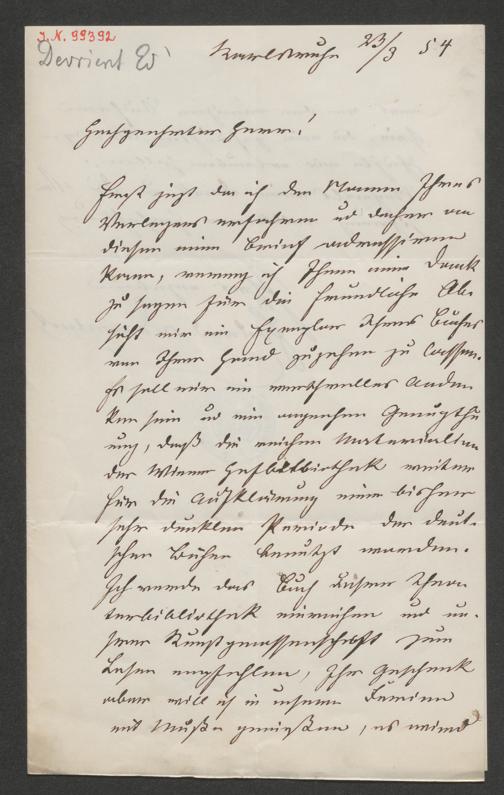 J. N. 99392
Devrient Ed
Karlsruhe 23/3 54
Hochgeehrter Herr!
Erst jezt da ich den Namen Ihres
Verlegers erfahren und daher an
diesen einen Brief adressiren
kann, vermag ich Ihnen meinen Dank
zu sagen für die freundliche Ab-
sicht mir ein Exemplar Ihres Buches
von Ihrer Hand zugehen zu lassen.
Es soll mir ein werthvolles Anden-
ken sein ud eine angenehme Genugthu
ung, daß die reichen Materialien
der Wiener Hofbibliothek weiter
für die Aufklärung einer bisher
sehr dunklen Periode der deut-
schen Bühne benutzt worden.
Ich werde das Buch unserer Thea-
terbibliothek einreihen und un-
serer Kunstgenossenschaft zum
Lesen empfehlen, Ihr Geschenk
aber will ich in unseren Ferien
mit Muße genießen, es wird